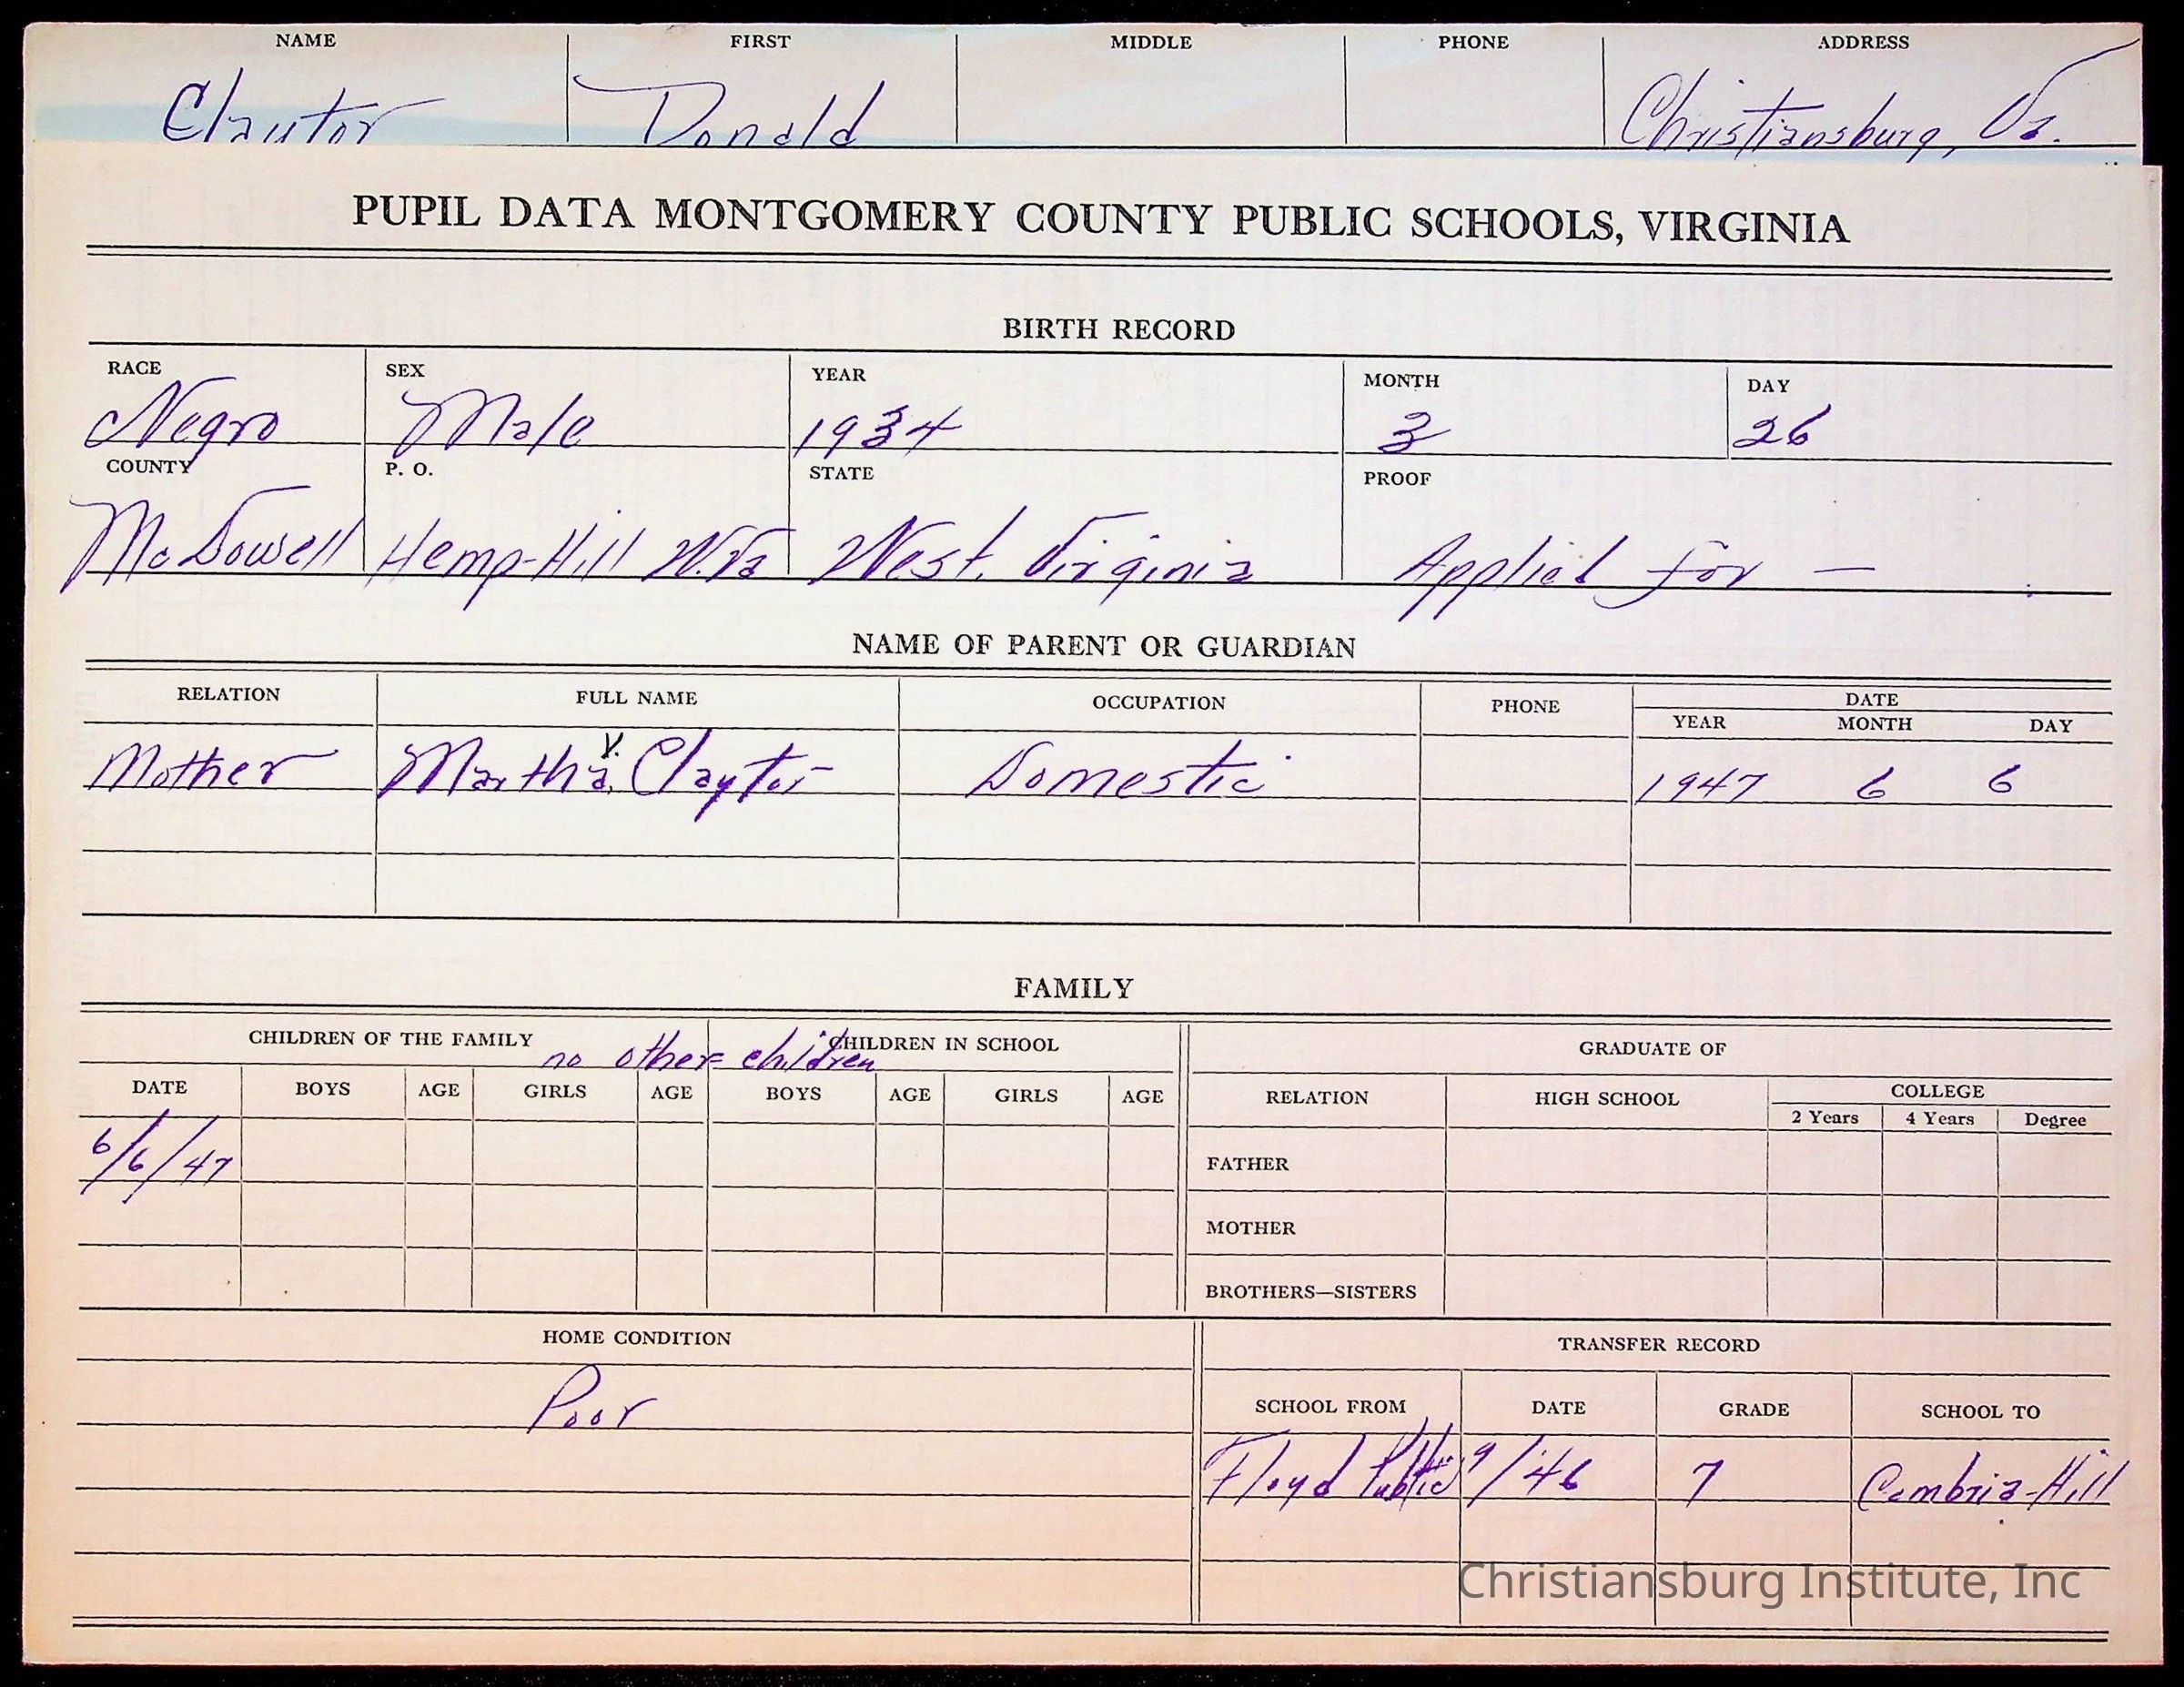 NAME FIRST MIDDLE PHONE ADDRESS
Claytor Donald Christiansburg, Va.
PUPIL DATA MONTGOMERY COUNTY PUBLIC SCHOOLS, VIRGINIA
BIRTH RECORD
RACE SEX YEAR MONTH DAY
Negro Male 1934 3 26
COUNTY P. O. STATE PROOF
McDowell Hemp-Hill W.Va West. Virginia Applied for —
NAME OF PARENT OR GUARDIAN
RELATION FULL NAME OCCUPATION PHONE DATE
YEAR MONTH DAY
Mother Martha V. Claytor Domestic 1947 6 6
FAMILY
CHILDREN OF THE FAMILY CHILDREN IN SCHOOL GRADUATE OF
no other children
DATE BOYS AGE GIRLS AGE BOYS AGE GIRLS AGE RELATION HIGH SCHOOL COLLEGE
2 Years 4 Years Degree
6/6/47
FATHER
MOTHER
BROTHERS—SISTERS
HOME CONDITION TRANSFER RECORD
Poor
SCHOOL FROM DATE GRADE SCHOOL TO
Floyd Public 9/'46 7 Cambria-Hill
Christiansburg Institute, Inc